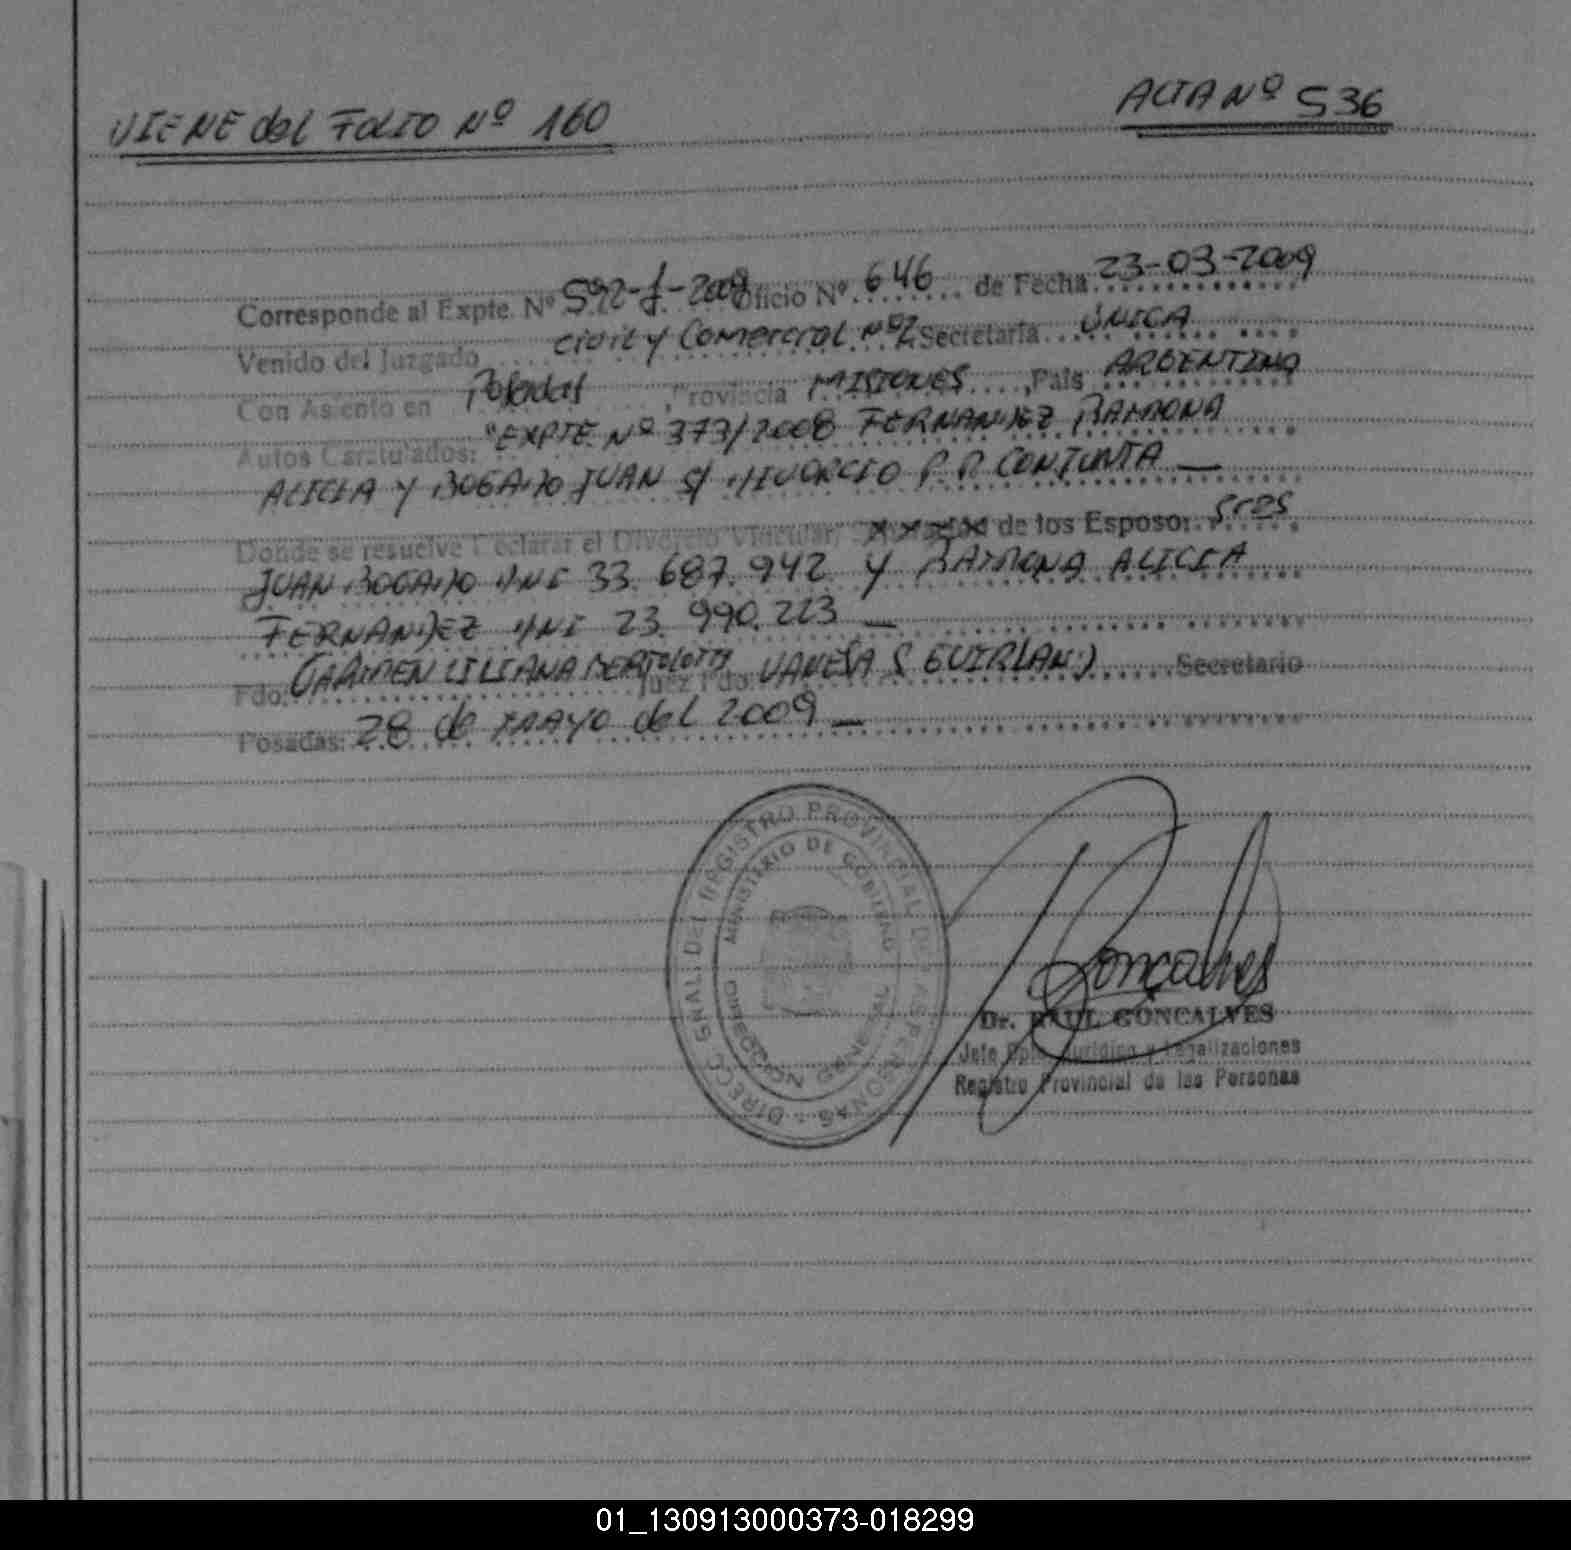 VIENE del FOLIO Nº 160
ACTA Nº 536
Corresponde al Expte. Nº 592-f-2009 Oficio Nº 646 de Fecha 23-03-2009
Venido del Juzgado civil y Comercial Nº 2 Secretaría UNICA
Con Asiento en Posadas, Provincia MISIONES, País ARGENTINA
Autos Caratulados: "EXPTE Nº 373/2008 FERNANDEZ RAMONA
ALICIA Y BOGADO JUAN S/ DIVORCIO P.P. CONJUNTA
Donde se resuelve Declarar el Divorcio Vincular, de los Esposos Sres
JUAN BOGADO DNI 33.687.942 Y RAMONA ALICIA
FERNANDEZ DNI 23.990.223
Fdo: CARMEN LILIANA BERTOLOTTI Juez Fdo: VANESA S GUIRLAND Secretario
Posadas: 28 de MAYO del 2009
DIRECC. GRAL. DEL REGISTRO PROVINCIAL DE LAS PERSONAS
MINISTERIO DE GOBIERNO
DIRECCION GENERAL
Goncalves
Dr. RAUL GONCALVES
Jefe Dpto. Jurídico y Legalizaciones
Registro Provincial de las Personas
01_130913000373-018299